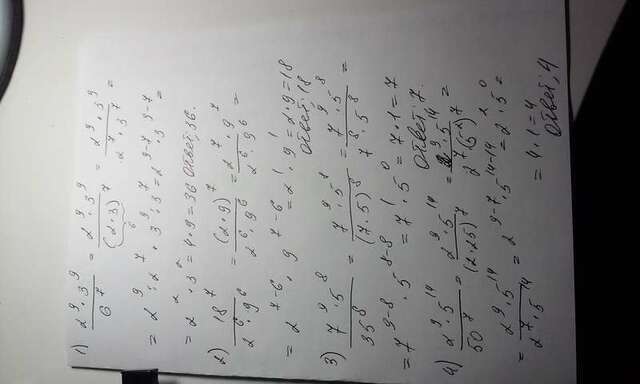 1) 2⁹·3⁹/6⁷ = 2⁹·3⁹/(2·3)⁷ = 2⁹·3⁹/2⁷·3⁷ =
6
= 2⁹:2⁷·3⁹:3⁷=2⁹⁻⁷·3⁹⁻⁷=
= 2²·3²=4·9=36 Ответ: 36.
2) 18⁷/2⁶·9⁶ = (2·9)⁷/2⁶·9⁶ = 2⁷·9⁷/2⁶·9⁶ =
= 2⁷⁻⁶·9⁷⁻⁶=2¹·9¹=2·9=18
Ответ: 18
3) 7⁹·5⁸/35⁸ = 7⁹·5⁸/(7·5)⁸ = 7⁹·5⁸/7⁸·5⁸ =
=7⁹⁻⁸·5⁸⁻⁸=7¹·5⁰=7·1=7
Ответ: 7.
4) 2⁹·5¹⁴/50⁷ = 2⁹·5¹⁴/(2·25)⁷ = 2⁹·5¹⁴/2⁷(5²)⁷ =
= 2⁹·5¹⁴/2⁷·5¹⁴ = 2⁹⁻⁷·5¹⁴⁻¹⁴=2²·5⁰=
= 4·1=4
Ответ: 4